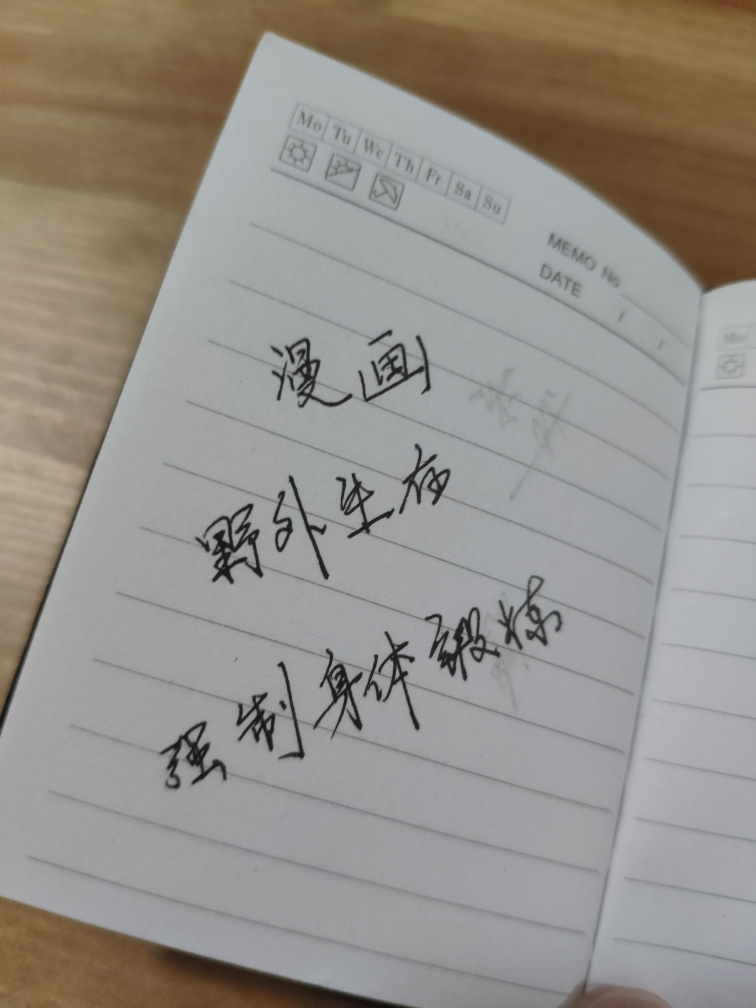 Mo Tu We Th Fr Sa Su
MEMO No
DATE / /
漫画
野外生存
强制身体锻炼
Mo